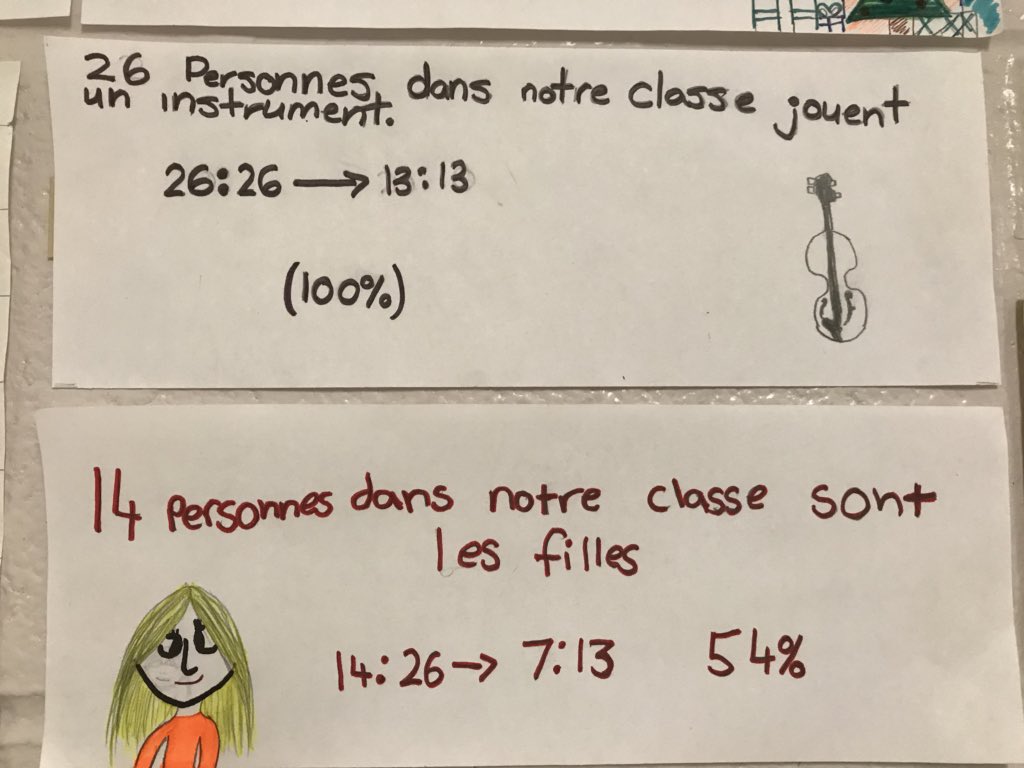 26 Personnes dans notre classe jouent
un instrument.
26:26 → 13:13
(100%)
14 personnes dans notre classe sont
les filles
14:26 → 7:13 54%